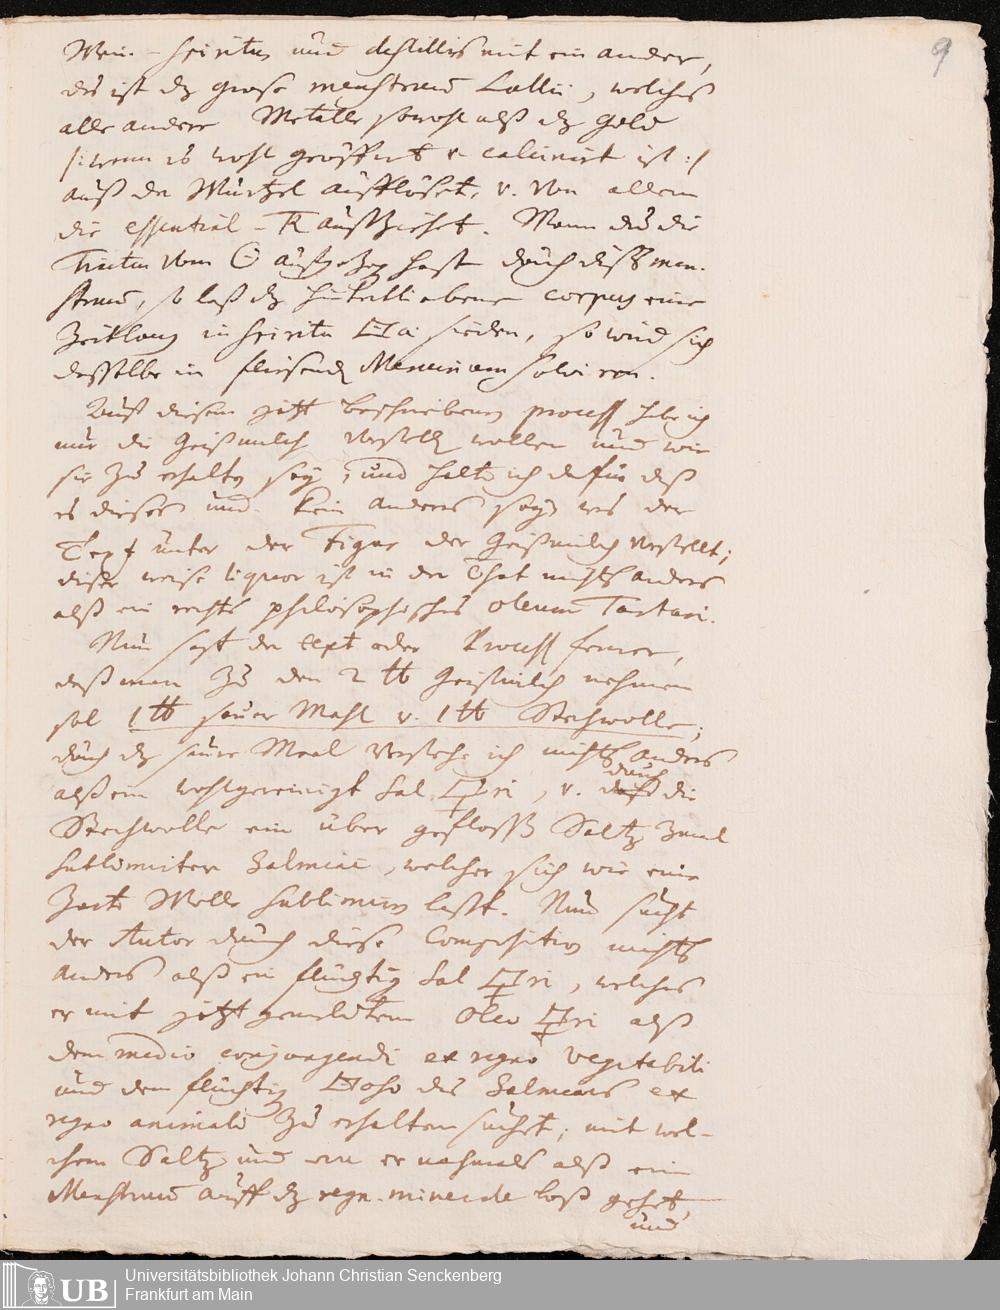 9
Wein-Spiritum und destillirs mit ein ander,
dis ist dz grose menstruum Lullii, welches
alle andere Metalle sowohl alß dz Gold
/: wenn es wohl geöffnet v. calcinirt ist :/
auß der Wurtzel aufflöset, v. von allem
die essential-TR außziehet. Wann du die
Tinctur vom ☉ außgezog hast durch diß men-
struum, so laß dz hinterbliebene corpus eine
Zeitlang in Spiritu □i sieden, so wird sich
dasselbe in fliesendz Mercurium solviren.
Auß diesem jetzt beschriebenen process habe ich
nur die Geißmilch vorstell wollen und wie
sie zu erhalten sey, und halte ich dafür daß
es dieses und kein anders seye was der
Text unter der Figur der Geißmilch vorstellt;
dieser weise liquor ist in der That nichts anders
alß ein rechts philosophisches oleum Tartari.
Nun sagt der text oder Process ferner,
daß man zu den 2 ℔ Geißmilch nehmen
sol 1 ℔ sauer Mahl v. 1 ℔ Stechwolle;
durch dz saure Meel verstehe ich nichts anders
alß ein wohlgereinigt Sal □ri, v. durch die
Stechwolle ein über geflossen Saltz und
sublimirten Salmiac, welcher sich wie eine
zarte Wolle sublimiren lasst. Nun sucht
der Autor durch diese Composition nichts
anders alß ein flüchtig Sal □ri, welches
er mit jetzt gemeldetem Oleo □ri alß
dem medio conjungendi ex regno vegitabili
und dem flüchtig □oso des Salmiacs ex
regno animali zu erhalten suchet; mit wel-
chem Saltz und er nachmals alß ein
Menstruum auff dz regn. minerale loß gehet,
und
UB
Universitätsbibliothek Johann Christian Senckenberg
Frankfurt am Main